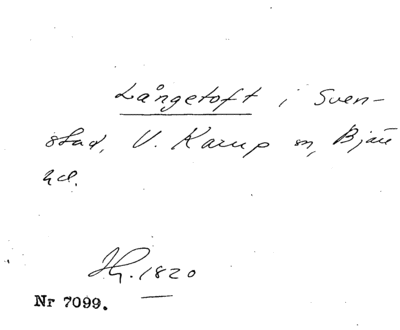 Långetoft i Sven-
stad, V. Karup sn, Bjäre
hd.
Hg. 1820
Nr 7099.